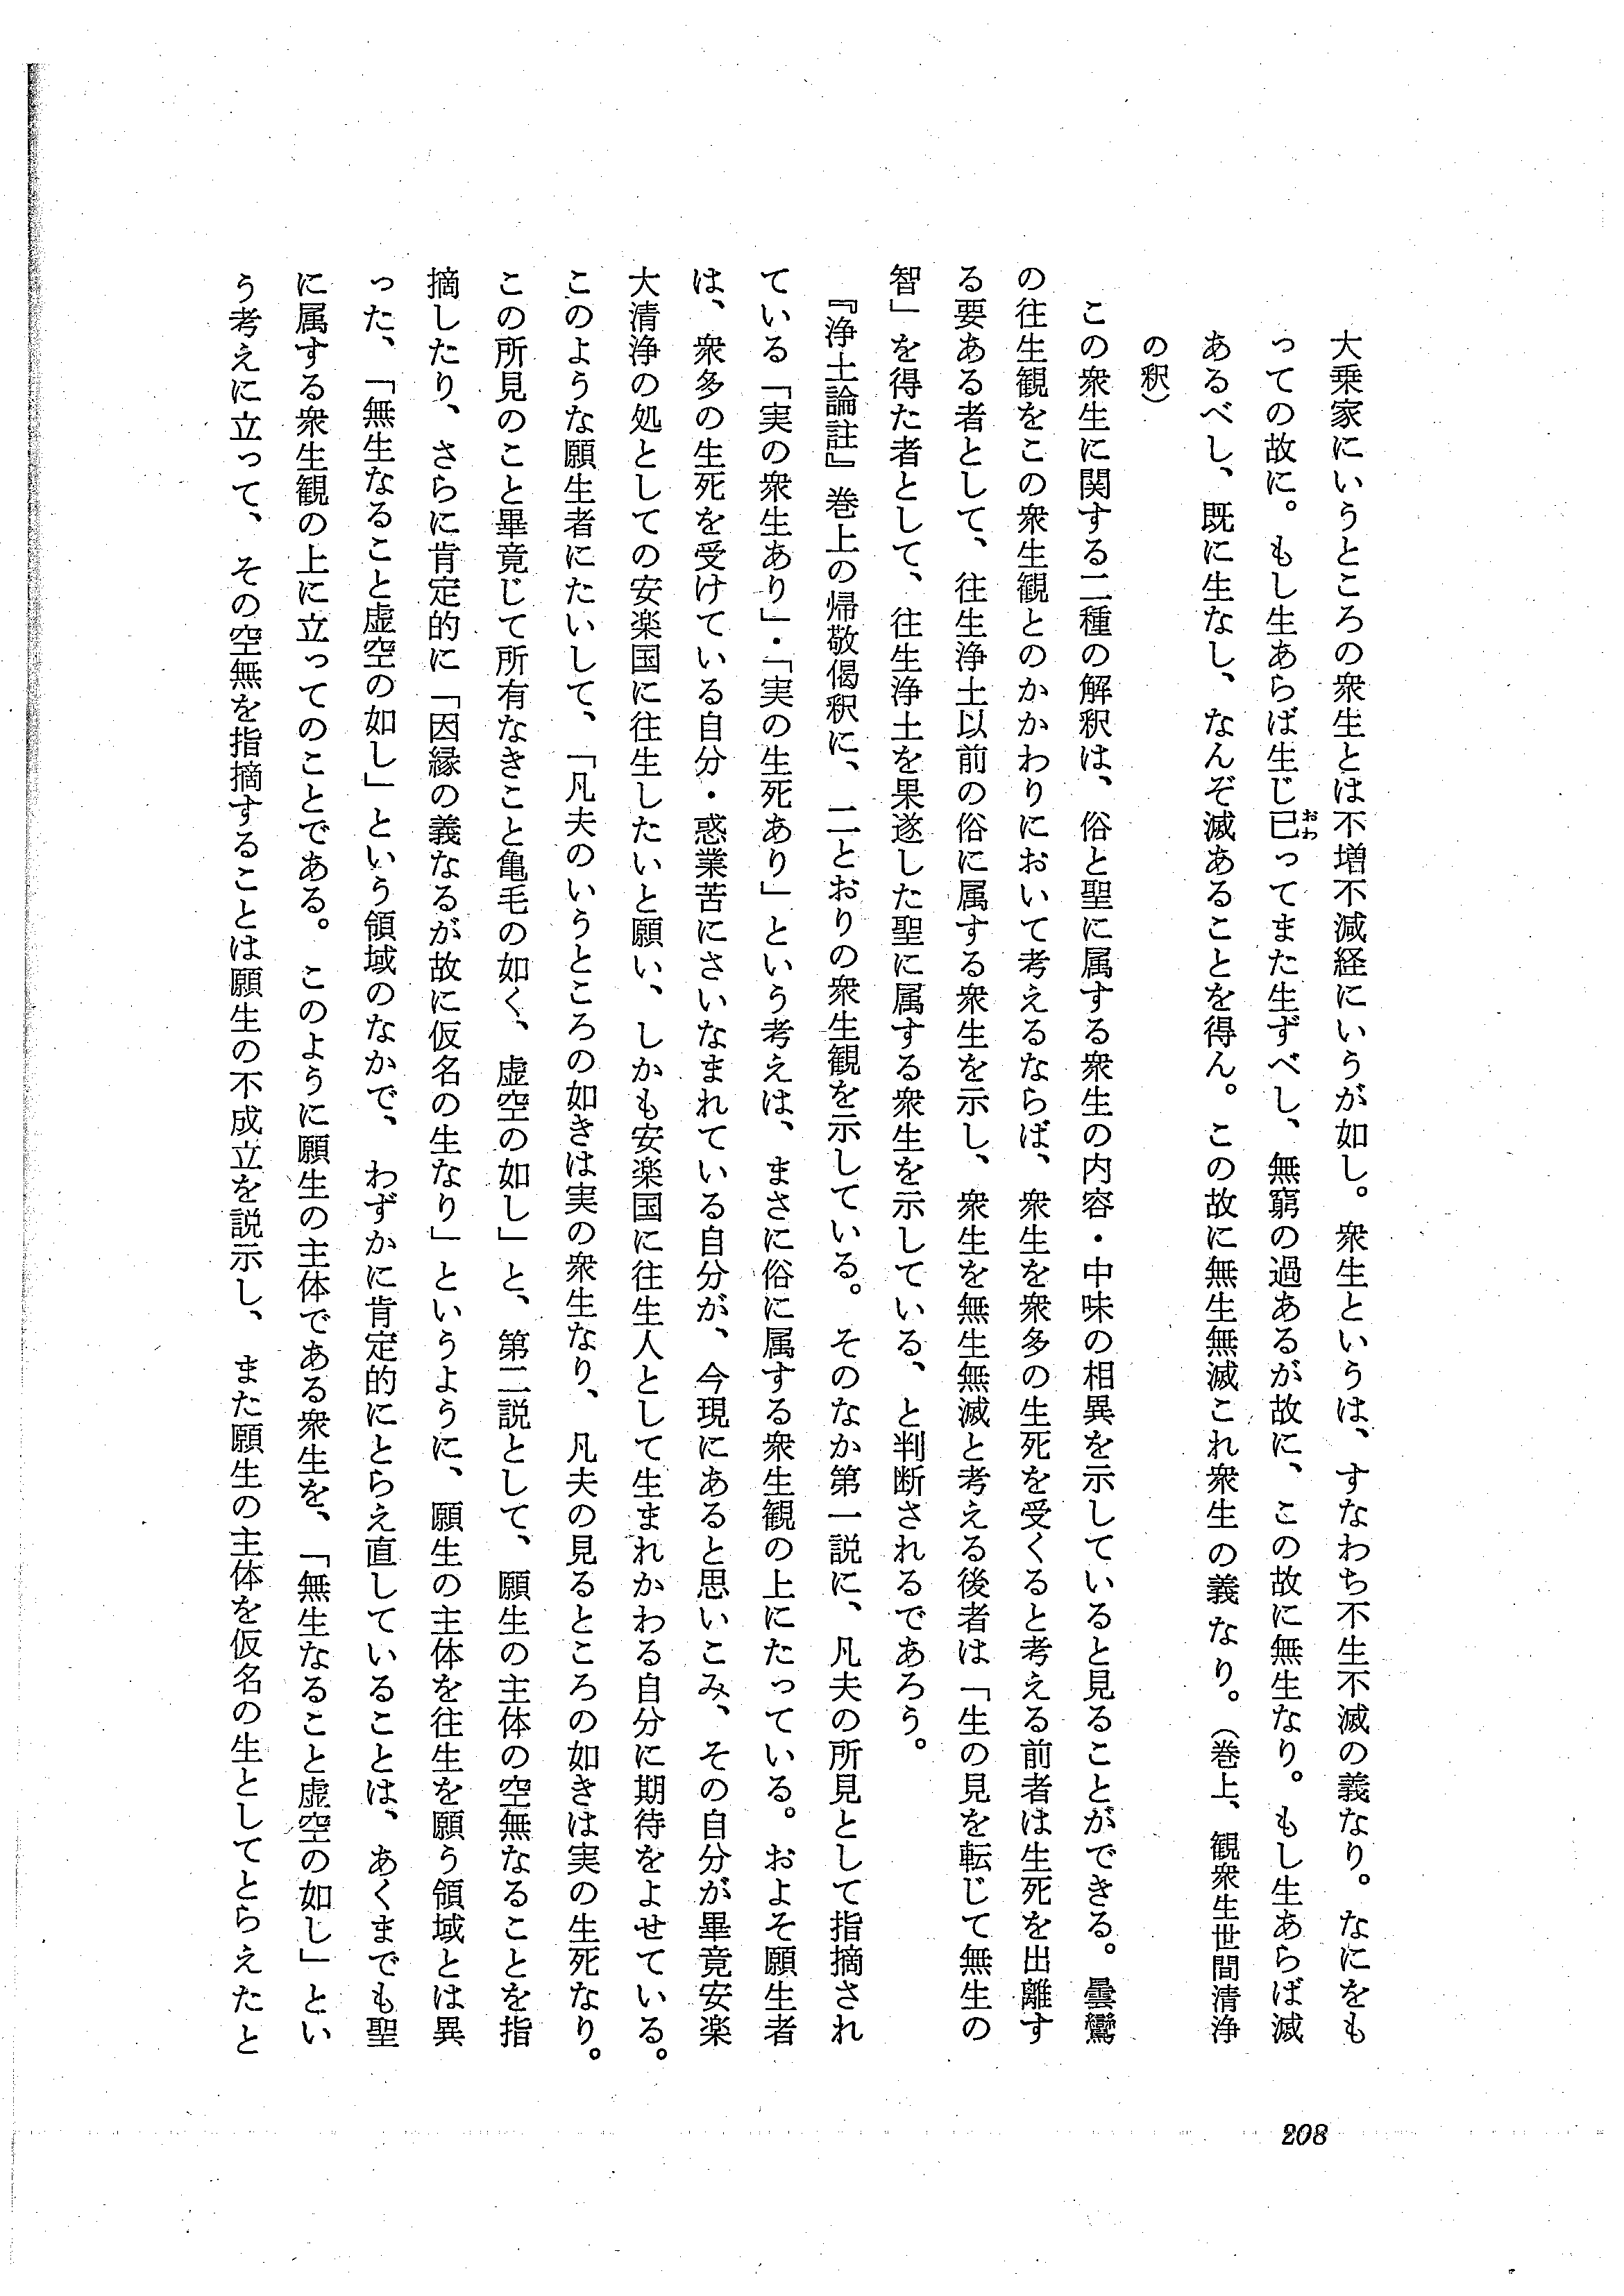 大乗家にいうところの衆生とは不増不減経にいうが如し。衆生というは、すなわち不生不滅の義なり。なにをも
っての故に。もし生あらば生じ已おわってまた生ずべし、無窮の過あるが故に、この故に無生なり。もし生あらば滅
あるべし、既に生なし、なんぞ滅あることを得ん。この故に無生無滅これ衆生の義なり。（巻上、観衆生世間清浄
の釈）
この衆生に関する二種の解釈は、俗と聖に属する衆生の内容・中味の相異を示していると見ることができる。曇鸞
の往生観をこの衆生観とのかかわりにおいて考えるならば、衆生を衆多の生死を受くると考える前者は生死を出離す
る要ある者として、往生浄土以前の俗に属する衆生を示し、衆生を無生無滅と考える後者は「生の見を転じて無生の
智」を得た者として、往生浄土を果遂した聖に属する衆生を示している、と判断されるであろう。
『浄土論註』巻上の帰敬偈釈に、二とおりの衆生観を示している。そのなか第一説に、凡夫の所見として指摘され
ている「実の衆生あり」・「実の生死あり」という考えは、まさに俗に属する衆生観の上にたっている。およそ願生者
は、衆多の生死を受けている自分・惑業苦にさいなまれている自分が、今現にあると思いこみ、その自分が畢竟安楽
大清浄の処としての安楽国に往生したいと願い、しかも安楽国に往生人として生まれかわる自分に期待をよせている。
このような願生者にたいして、「凡夫のいうところの如きは実の衆生なり、凡夫の見るところの如きは実の生死なり。
この所見のこと畢竟じて所有なきこと亀毛の如く、虚空の如し」と、第二説として、願生の主体の空無なることを指
摘したり、さらに肯定的に「因縁の義なるが故に仮名の生なり」というように、願生の主体を往生を願う領域とは異
った、「無生なること虚空の如し」という領域のなかで、わずかに肯定的にとらえ直していることは、あくまでも聖
に属する衆生観の上に立ってのことである。このように願生の主体である衆生を、「無生なること虚空の如し」とい
う考えに立って、その空無を指摘することは願生の不成立を説示し、また願生の主体を仮名の生としてとらえたと
208